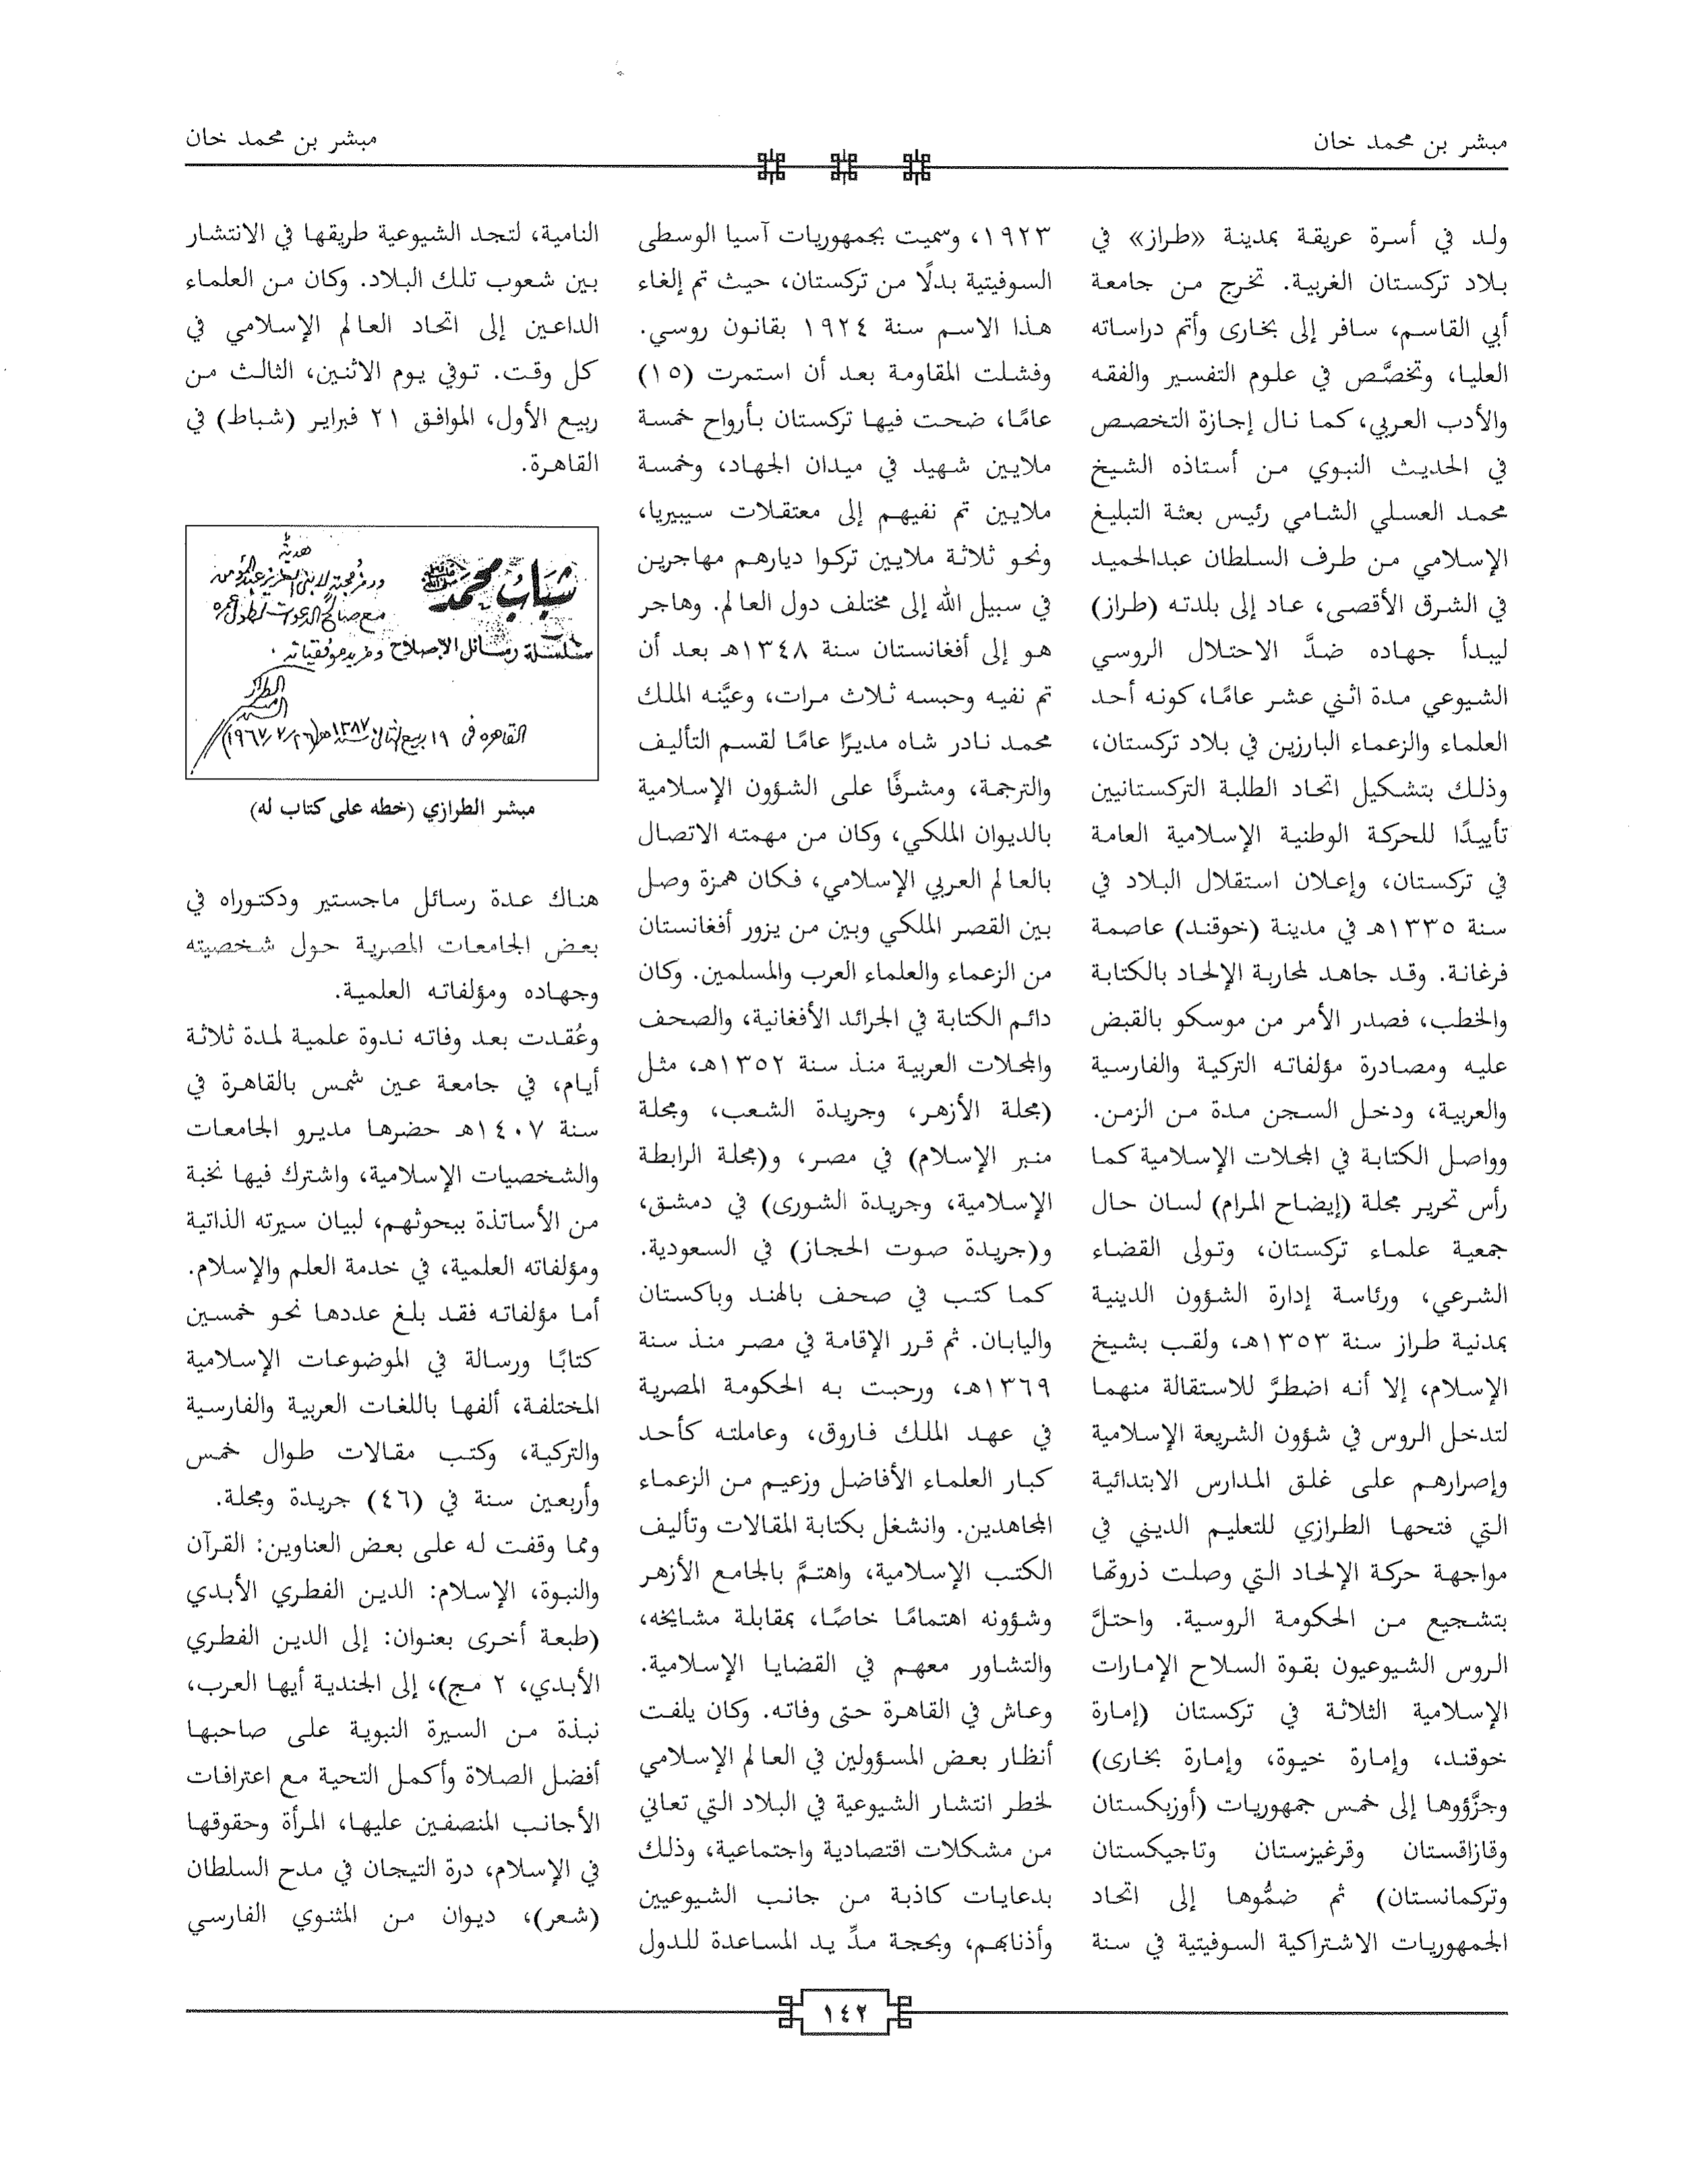 مبشر بن محمد خان
مبشر بن محمد خان
ولد في أسرة عريقة بمدينة «طراز» في
بلاد تركستان الغربية. تخرج من جامعة
أبي القاسم، سافر إلى بخارى وأتم دراساته
العليا، وتخصَّص في علوم التفسير والفقه
والأدب العربي، كما نال إجازة التخصص
في الحديث النبوي من أستاذه الشيخ
محمد العسلي الشامي رئيس بعثة التبليغ
الإسلامي من طرف السلطان عبدالحميد
في الشرق الأقصى، عاد إلى بلدته (طراز)
ليبدأ جهاده ضدَّ الاحتلال الروسي
الشيوعي مدة اثني عشر عامًا، كونه أحد
العلماء والزعماء البارزين في بلاد تركستان،
وذلك بتشكيل اتحاد الطلبة التركستانيين
تأييدًا للحركة الوطنية الإسلامية العامة
في تركستان، وإعلان استقلال البلاد في
سنة ١٣٣٥هـ في مدينة (خوقند) عاصمة
فرغانة. وقد جاهد لمحاربة الإلحاد بالكتابة
والخطب، فصدر الأمر من موسكو بالقبض
عليه ومصادرة مؤلفاته التركية والفارسية
والعربية، ودخل السجن مدة من الزمن.
وواصل الكتابة في المجلات الإسلامية كما
رأس تحرير مجلة (إيضاح المرام) لسان حال
جمعية علماء تركستان، وتولى القضاء
الشرعي، ورئاسة إدارة الشؤون الدينية
بمدنية طراز سنة ١٣٥٣هـ، ولقب بشيخ
الإسلام، إلا أنه اضطرَّ للاستقالة منهما
لتدخل الروس في شؤون الشريعة الإسلامية
وإصرارهم على غلق المدارس الابتدائية
التي فتحها الطرازي للتعليم الديني في
مواجهة حركة الإلحاد التي وصلت ذروتها
بتشجيع من الحكومة الروسية. واحتلَّ
الروس الشيوعيون بقوة السلاح الإمارات
الإسلامية الثلاثة في تركستان (إمارة
خوقند، وإمارة خيوة، وإمارة بخارى)
وجزَّؤوها إلى خمس جمهوريات (أوزبكستان
وقازاقستان وقرغيزستان وتاجيكستان
وتركمانستان) ثم ضمُّوها إلى اتحاد
الجمهوريات الاشتراكية السوفيتية في سنة
١٩٢٣، وسميت بجمهوريات آسيا الوسطى
السوفيتية بدلًا من تركستان، حيث تم إلغاء
هذا الاسم سنة ١٩٢٤ بقانون روسي.
وفشلت المقاومة بعد أن استمرت (١٥)
عامًا، ضحت فيها تركستان بأرواح خمسة
ملايين شهيد في ميدان الجهاد، وخمسة
ملايين تم نفيهم إلى معتقلات سيبيريا،
ونحو ثلاثة ملايين تركوا ديارهم مهاجرين
في سبيل الله إلى مختلف دول العالم. وهاجر
هو إلى أفغانستان سنة ١٣٤٨هـ بعد أن
تم نفيه وحبسه ثلاث مرات، وعيَّنه الملك
محمد نادر شاه مديرًا عامًا لقسم التأليف
والترجمة، ومشرفًا على الشؤون الإسلامية
بالديوان الملكي، وكان من مهمته الاتصال
بالعالم العربي الإسلامي، فكان همزة وصل
بين القصر الملكي وبين من يزور أفغانستان
من الزعماء والعلماء العرب والمسلمين. وكان
دائم الكتابة في الجرائد الأفغانية، والصحف
والمجلات العربية منذ سنة ١٣٥٢هـ، مثل
(مجلة الأزهر، وجريدة الشعب، ومجلة
منبر الإسلام) في مصر، و(مجلة الرابطة
الإسلامية، وجريدة الشورى) في دمشق،
و(جريدة صوت الحجاز) في السعودية.
كما كتب في صحف بالهند وباكستان
واليابان. ثم قرر الإقامة في مصر منذ سنة
١٣٦٩هـ، ورحبت به الحكومة المصرية
في عهد الملك فاروق، وعاملته كأحد
كبار العلماء الأفاضل وزعيم من الزعماء
المجاهدين. وانشغل بكتابة المقالات وتأليف
الكتب الإسلامية، واهتمَّ بالجامع الأزهر
وشؤونه اهتمامًا خاصًا، بمقابلة مشايخه،
والتشاور معهم في القضايا الإسلامية.
وعاش في القاهرة حتى وفاته. وكان يلفت
أنظار بعض المسؤولين في العالم الإسلامي
لخطر انتشار الشيوعية في البلاد التي تعاني
من مشكلات اقتصادية واجتماعية، وذلك
بدعايات كاذبة من جانب الشيوعيين
وأذنابهم، وبحجة مدِّ يد المساعدة للدول
النامية، لتجد الشيوعية طريقها في الانتشار
بين شعوب تلك البلاد. وكان من العلماء
الداعين إلى اتحاد العالم الإسلامي في
كل وقت. توفي يوم الاثنين، الثالث من
ربيع الأول، الموافق ٢١ فبراير (شباط) في
القاهرة.
هدية
شباب محمد
ورمز محبة لابني العزيز عبد المؤمن
مع صالح الدعوات لطول عمره
سلسلة رسائل الإصلاح ومزيد موفقياته.
القاهرة فى ١٩ ربيع الثاني سنة ١٣٨٧هـ (٢٦/٧/١٩٦٧)
مبشر الطرازي (خطه على كتاب له)
هناك عدة رسائل ماجستير ودكتوراه في
بعض الجامعات المصرية حول شخصيته
وجهاده ومؤلفاته العلمية.
وعُقدت بعد وفاته ندوة علمية لمدة ثلاثة
أيام، في جامعة عين شمس بالقاهرة في
سنة ١٤٠٧هـ حضرها مديرو الجامعات
والشخصيات الإسلامية، واشترك فيها نخبة
من الأساتذة ببحوثهم، لبيان سيرته الذاتية
ومؤلفاته العلمية، في خدمة العلم والإسلام.
أما مؤلفاته فقد بلغ عددها نحو خمسين
كتابًا ورسالة في الموضوعات الإسلامية
المختلفة، ألفها باللغات العربية والفارسية
والتركية، وكتب مقالات طوال خمس
وأربعين سنة في (٤٦) جريدة ومجلة.
ومما وقفت له على بعض العناوين: القرآن
والنبوة، الإسلام: الدين الفطري الأبدي
(طبعة أخرى بعنوان: إلى الدين الفطري
الأبدي، ٢ مج)، إلى الجندية أيها العرب،
نبذة من السيرة النبوية على صاحبها
أفضل الصلاة وأكمل التحية مع اعترافات
الأجانب المنصفين عليها، المرأة وحقوقها
في الإسلام، درة التيجان في مدح السلطان
(شعر)، ديوان من المثنوي الفارسي
١٤٢